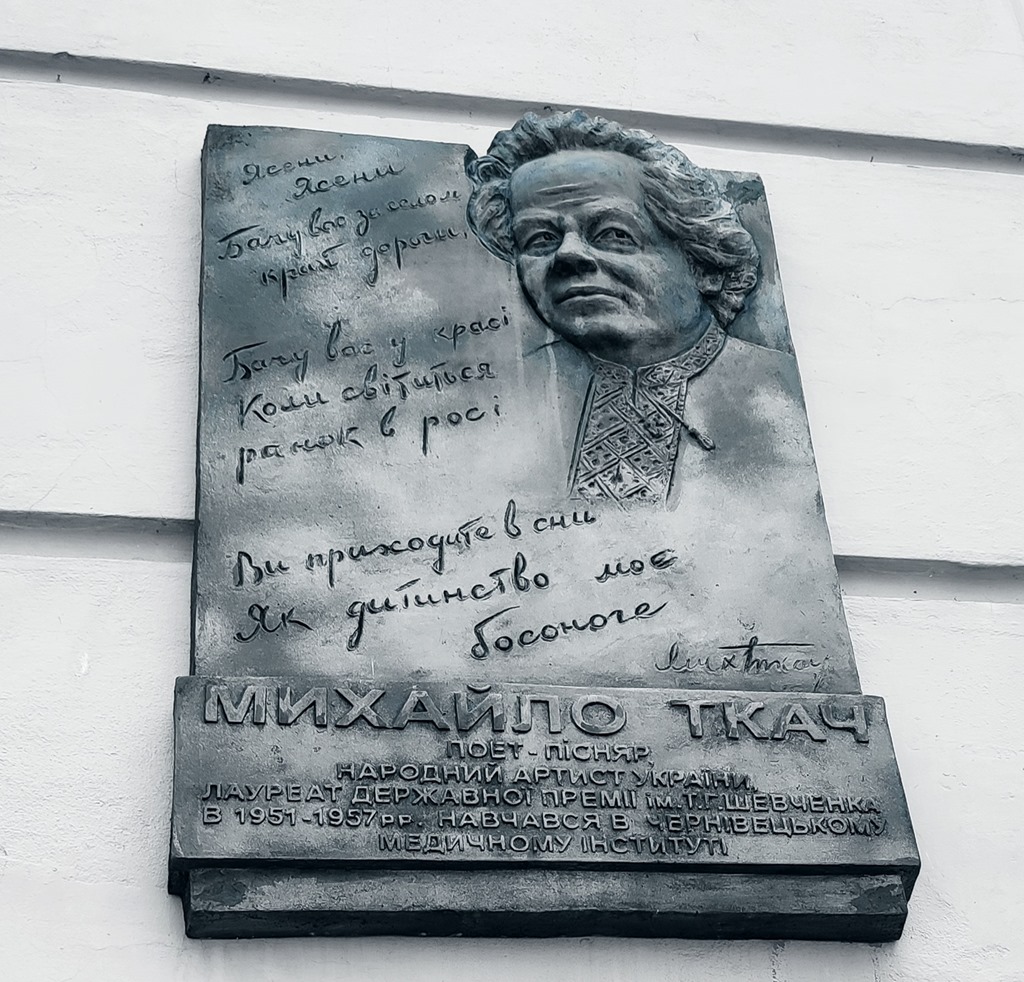 Ясени,
Ясени
Бачу вас за селом
край дороги,
Бачу вас у красі
Коли світиться
ранок в росі
Ви приходите в сни
Як дитинство моє
босоноге
МИХАЙЛО ТКАЧ
ПОЕТ-ПІСНЯР,
НАРОДНИЙ АРТИСТ УКРАЇНИ,
ЛАУРЕАТ ДЕРЖАВНОЇ ПРЕМІЇ ІМ.Т.Г.ШЕВЧЕНКА
В 1951-1957рр. НАВЧАВСЯ В ЧЕРНІВЕЦЬКОМУ
МЕДИЧНОМУ ІНСТИТУТІ